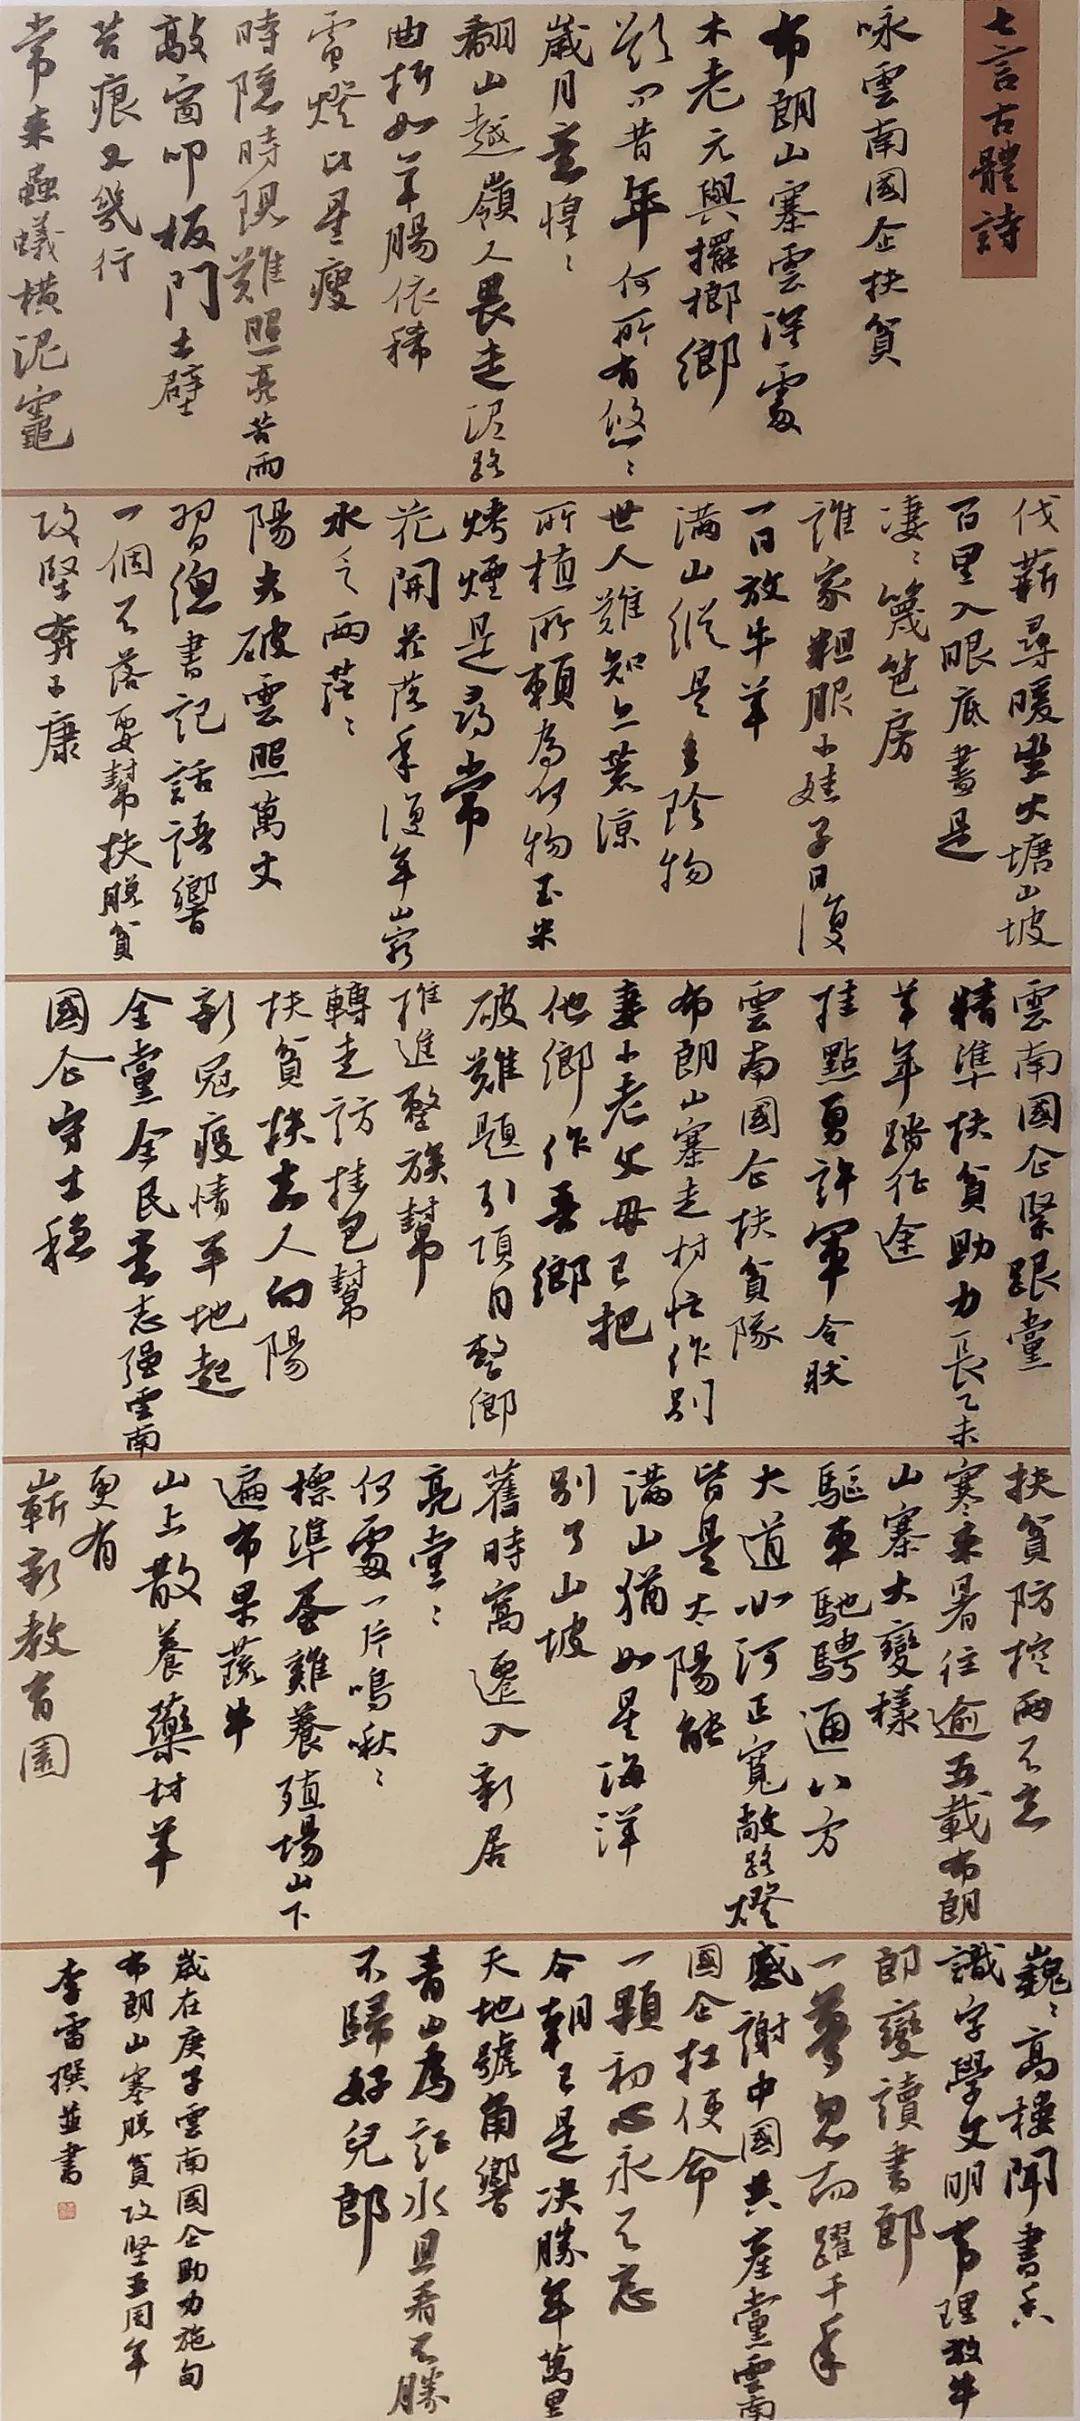 七言古體詩
咏雲南國企扶貧
布朗山寨雲深處
木老元與擺榔鄉
昔年何所有悠々
歲月意惶々
翻山越嶺人畏走泥路
曲折如羊腸依稀
雪燈比星瘦
時隱時現難照亮苦雨
敲窗叩板門土壁
苔痕又幾行
常來蟲蟻橫泥竈
伐薪尋暖坐火塘山坡
百里入眼底盡是
淒々篾笆房
誰家粗服小娃子日復
一日放牛羊
滿山縱是多珍物
世人難知亦荒涼
所植所賴為何物玉米
烤煙是尋常
花開花落年復年山窮
水乏兩茫々
陽光破雲照萬丈
習總書記話語響
一個不落要幫扶脫貧
攻堅奔小康
雲南國企緊跟黨
精準扶貧助力長乙未
羊年踏征途
挂點勇許軍令狀
雲南國企扶貧隊
布朗山寨走村忙作别
妻小老父母已把
他鄉作吾鄉
破難題引項目整鄉
推進整族幫
轉走訪挂包幫
扶貧扶志人向陽
新冠疫情平地起
全黨全民意志强雲南
國企守土穩
扶貧防控兩不忘
寒來暑往逾五載布朗
山寨大變樣
驅車馳騁通八方
大道如河正寬敞路燈
皆是太陽能
滿山猶如星海洋
别了山坡
舊時窩遷入新居
亮堂々
何處一片鳴啾々
標準蛋雞養殖場山下
遍布果蔬牛
山上散養藥材羊
更有
嶄新教育園
巍々高樓聞書香
識字學文明事理放牛
郎變讀書郎
一夢忽而躍千年
感謝中國共產黨雲南
國企扛使命
一顆初心永不忘
今朝已是决勝年萬里
天地號角響
青山為記水且看不勝
不歸好兒郎
歲在庚子雲南國企助力施甸
布朗山寨脫貧攻堅五周年
李雷撰並書